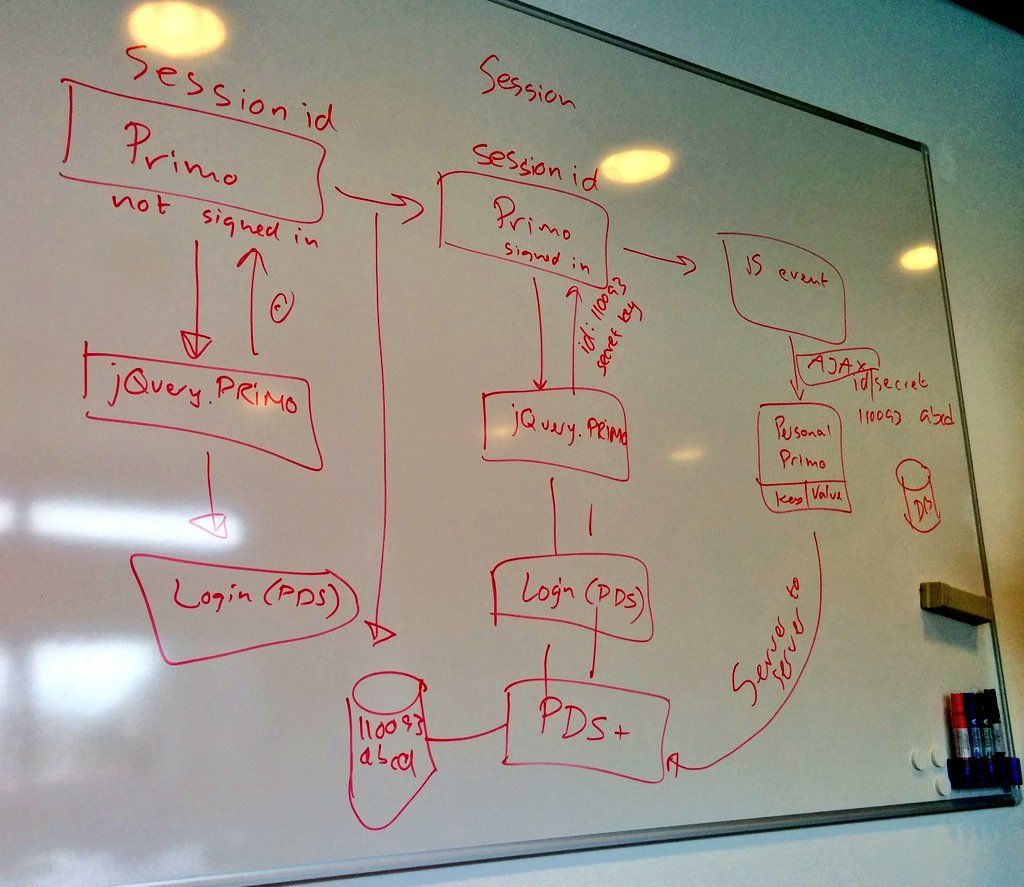 Session id
Primo
not signed in
jQuery.PRiMO
Login (PDS)
Session
session id
Primo
signed in
id: 110093
secret key
jQuery.PRiMO
Login (PDS)
PDS+
110093
abcd
JS event
AJAX
id/secret
110093 abcd
Personal
Primo
key/value
DB
Server to
server